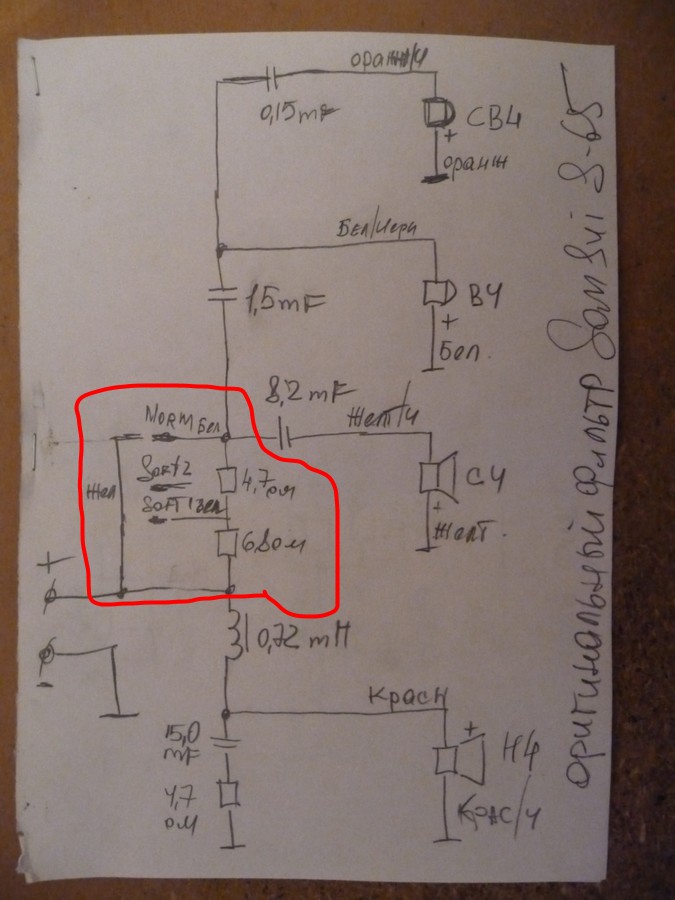 оранж/ч
0,15mF
СВЧ
+
оранж
Бел/черн
1,5mF
ВЧ
+
Бел.
8,2mF
Желт/ч
NORM Бел
4,7 ом
Soft 2
Soft 1
Жел
СЧ
+
Желт.
68ом
+
-
0,72 mH
Красн
15,0
mF
+
НЧ
4,7
ом
Крас/ч
оригинальный фильтр Sansui S-65